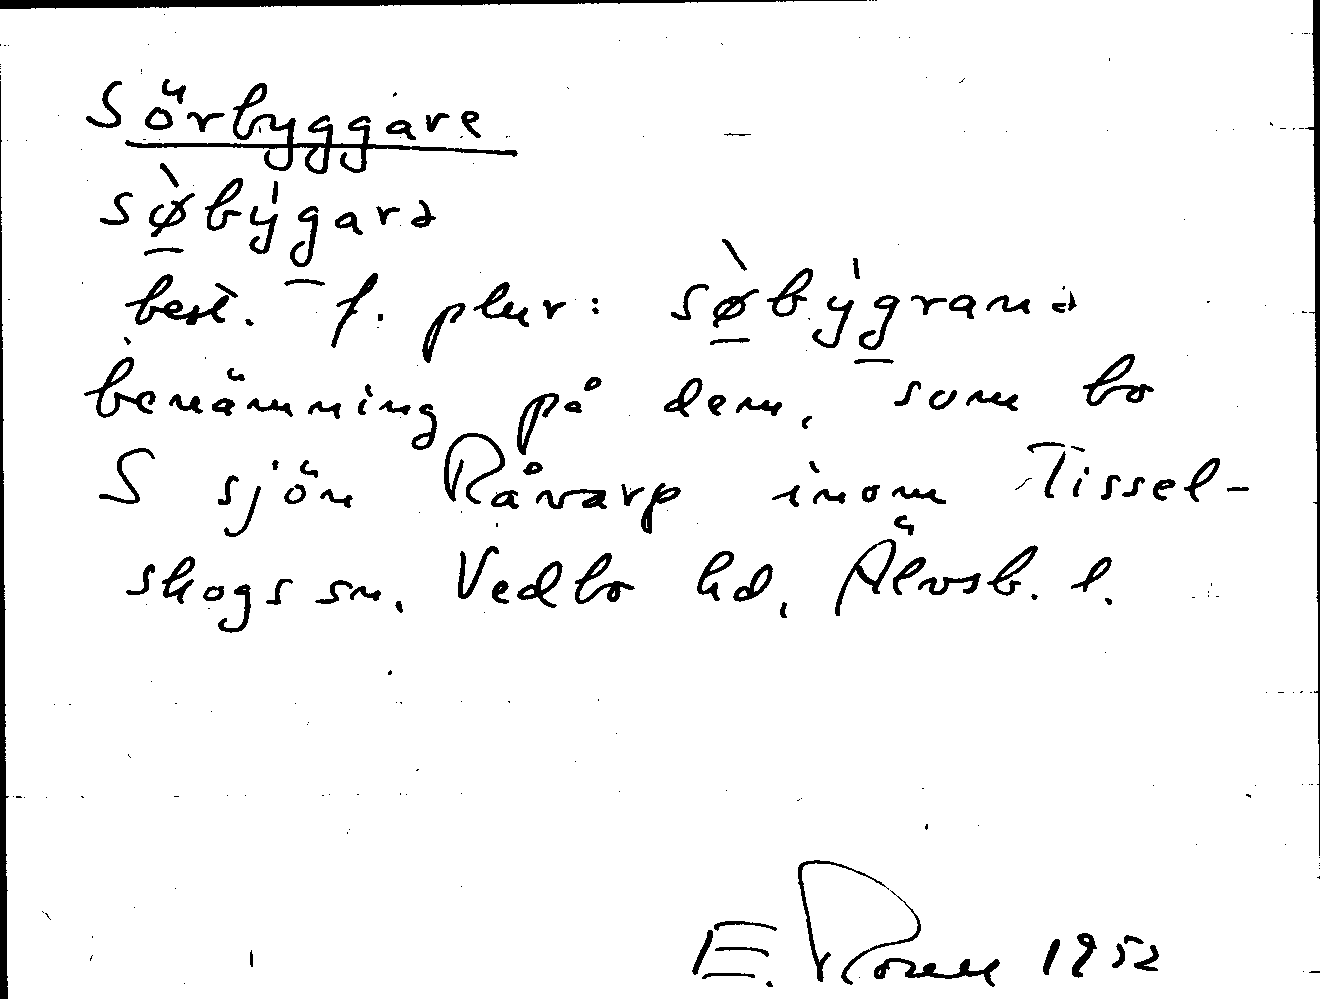 Sörbyggare
sø̀býgarə
best. f. plur: sø̀býgranə
benämning på dem, som bo
S sjön Råvarp inom Tissel-
skogs sn, Vedbo hd, Älvsb. l.
E. 1952